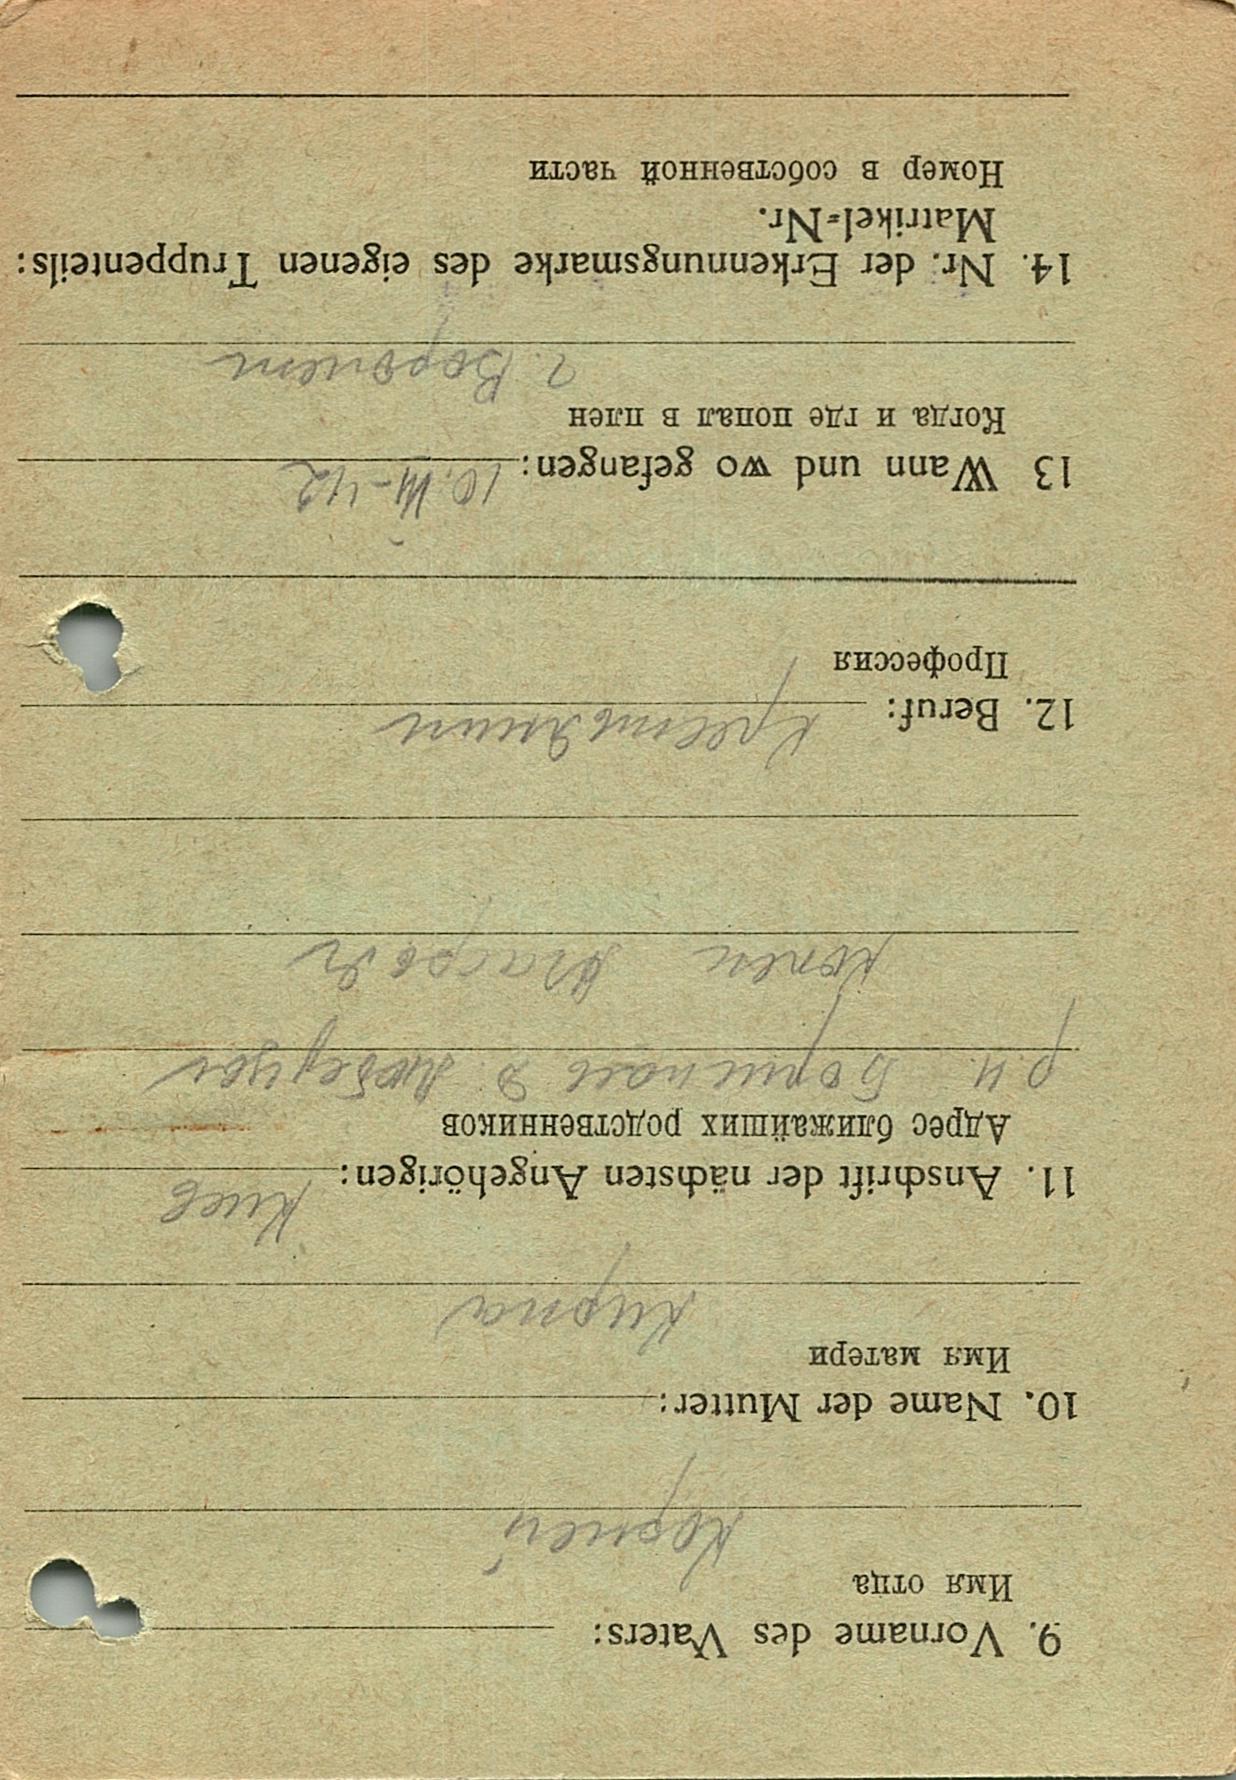 9. Vorname des Vaters:
Имя отца
Корней
10. Name der Mutter:
Имя матери
Кирпа
11. Anschrift der nächsten Angehörigen: Киев
Адрес ближайших родственников
р.н. Бориполь д.
12. Beruf: Крестьянин
Профессия
13 Wann und wo gefangen: 10.
Когда и где попал в плен
г.
14. Nr. der Erkennungsmarke des eigenen Truppenteils:
Matrikel-Nr.
Номер в собственной части